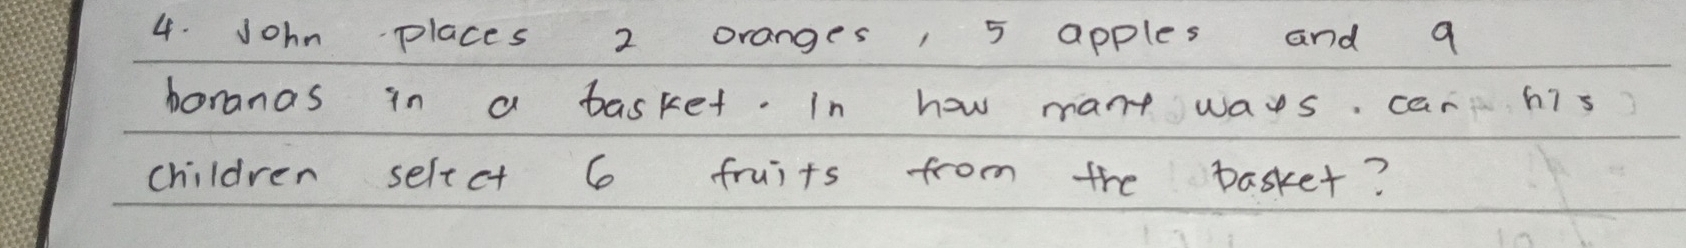 4. John places 2 oranges, 5 apples and 9
bonanas in a basket. In how many ways. can his
children select 6 fruits from the basket?